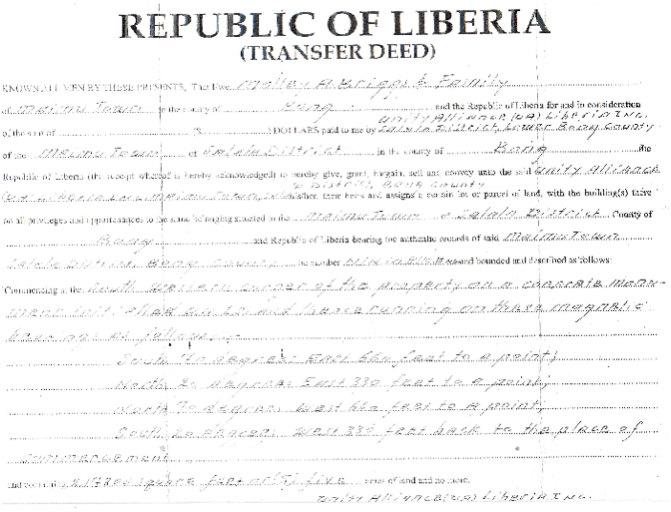 REPUBLIC OF LIBERIA
(TRANSFER DEED)
KNOWN ALL MEN BY THESE PRESENTS, That I/we Molley A. Briggs & Family
of Maimu Town in the county of Bong and the Republic of Liberia for and in consideration
Unity Alliance (UA) Liberia INC.
of the sum of DOLLARS paid to me by Salala District, Lower Bong County
of the Maimu Town of Salala District in the county of Bong the
Republic of Liberia (the receipt whereof is hereby acknowledged) to hereby give, grant, bargain, sell and convey unto the said Unity Alliance
District, Bong County
(UA) Liberia INC. Maimu Town, his/her, their heirs and assigns a certain lot or parcel of land, with the building(s) there
on all privileges and appurtenances to the same belonging situated in the Maimu Town Salala District County of
Bong and Republic of Liberia bearing the authentic records of said Maimu Town
Salala District, Bong County the number and bounded and described as follows:
Commencing at the South Western corner of the property on a concrete monu-
ment and thence running on these magnetic
bearings as follows:
South 70 degrees East 660 feet to a point;
North 20 degrees East 330 feet to a point;
North 70 degrees West 660 feet to a point;
South 20 degrees West 330 feet back to the place of
commencement
and contains square feet or (5) five acres of land and no more.
Unity Alliance (UA) Liberia INC.